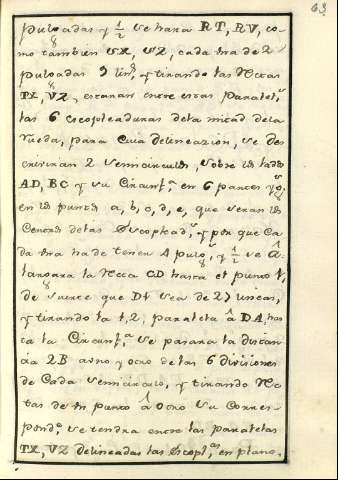 63
pulgadas y 1/2 se hara RT, RV, co-
mo tambien SX, SZ, cada una de 2
pulgadas 9 lins, y tirando las rectas
TX, VZ, estaran entre estas paralels
las 6 escopleaduras de la mitad de la
rueda, para cuia delineazion, se des
criviran 2 semicirculos, sobre los lados
AD, BC y su Circunfa en 6 partes ygs
en los puntos a, b, c, d, e, que seran los
Centros de las Escoplead,s y por que Ca
da una ha de tener 4 pulgs y 1/2 se A-
largara la recta CD hasta el punto t,
de suerte que Dt sea de 27 lineas,
y tirando la t,2, paralela â DA, has
ta la Circunfa se pasara la distan
cia 2B a uno y otro de las 6 divisiones
de Cada semicirculo, y tirando rec
tas de un punto â otro su Corres-
pondte se tendra entre las paralelas
TX, VZ delineadas las Escoplas en plano.